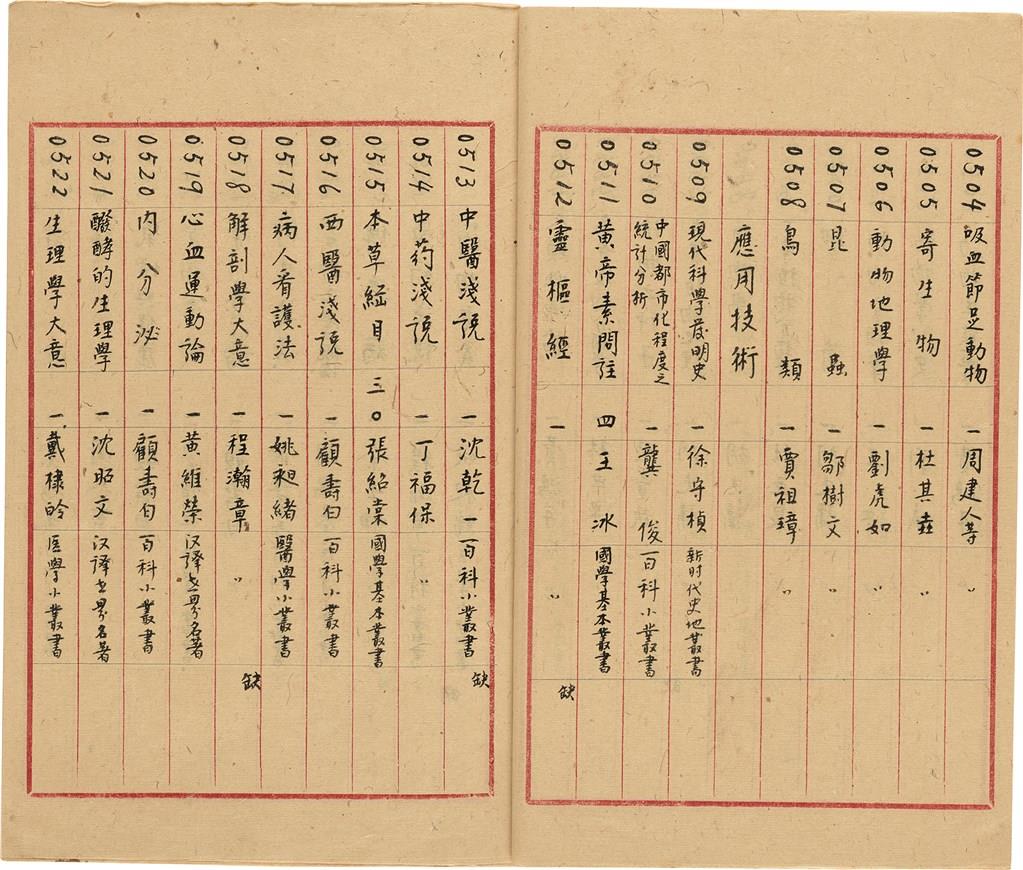 0504 吸血節足動物 一 周建人等 〃
0505 寄生物 一 杜其垚 〃
0506 動物地理學 一 劉虎如 〃
0507 昆蟲 一 鄒樹文 〃
0508 鳥類 一 賈祖璋 〃
應用技術
0509 現代科學發明史 一 徐守楨 新时代史地叢書
0510 中國都市化程度之統計分析 一 龔俊 百科小叢書
0511 黃帝素問註 四 王冰 國學基本叢書
0512 靈樞經 一 缺
0513 中醫淺說 一 沈乾一 百科小叢書 缺
0514 中药淺說 一 丁福保 〃
0515 本草經目 三〇 張紹棠 國學基本叢書
0516 西醫淺說 一 顧壽白 百科小叢書
0517 病人看護法 一 姚昶緒 醫學小叢書
0518 解剖學大意 一 程瀚章 〃 缺
0519 心血運動論 一 黃維榮 汉譯世界名著
0520 內分泌 一 顧壽白 百科小叢書
0521 醱酵的生理學 一 沈昭文 汉譯世界名著
0522 生理學大意 一 戴棣岭 医學小叢書